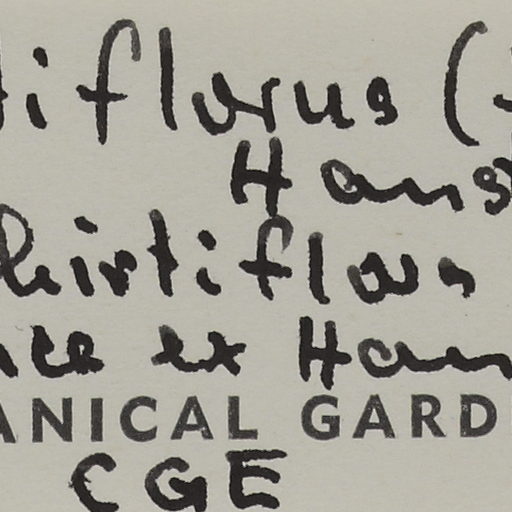 iflorus (
Hans
hirtiflora
nce ex Han
ANICAL GARD
CGE